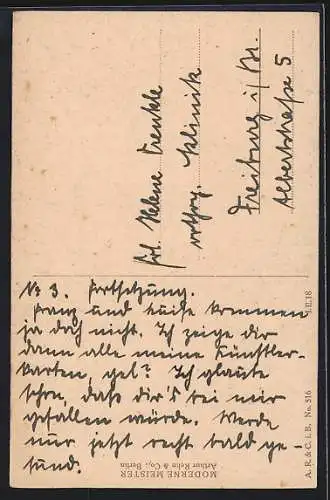 Frl. Helene Trenkle
orthop. Klinik
Freiburg i/Br.
Albertstraße 5
No 3. Fortsetzung.
Franz und Luise kommen
ja doch nicht. Ich zeige dir
dann alle meine Künstler-
karten, gel? Ich glaubte
schon, daß dir's bei mir
gefallen würde. Werde
nur jetzt recht bald ge
sund.
MODERNE MEISTER
Arthur Rehn & Co., Berlin
A. R. & C. i. B. No. 516